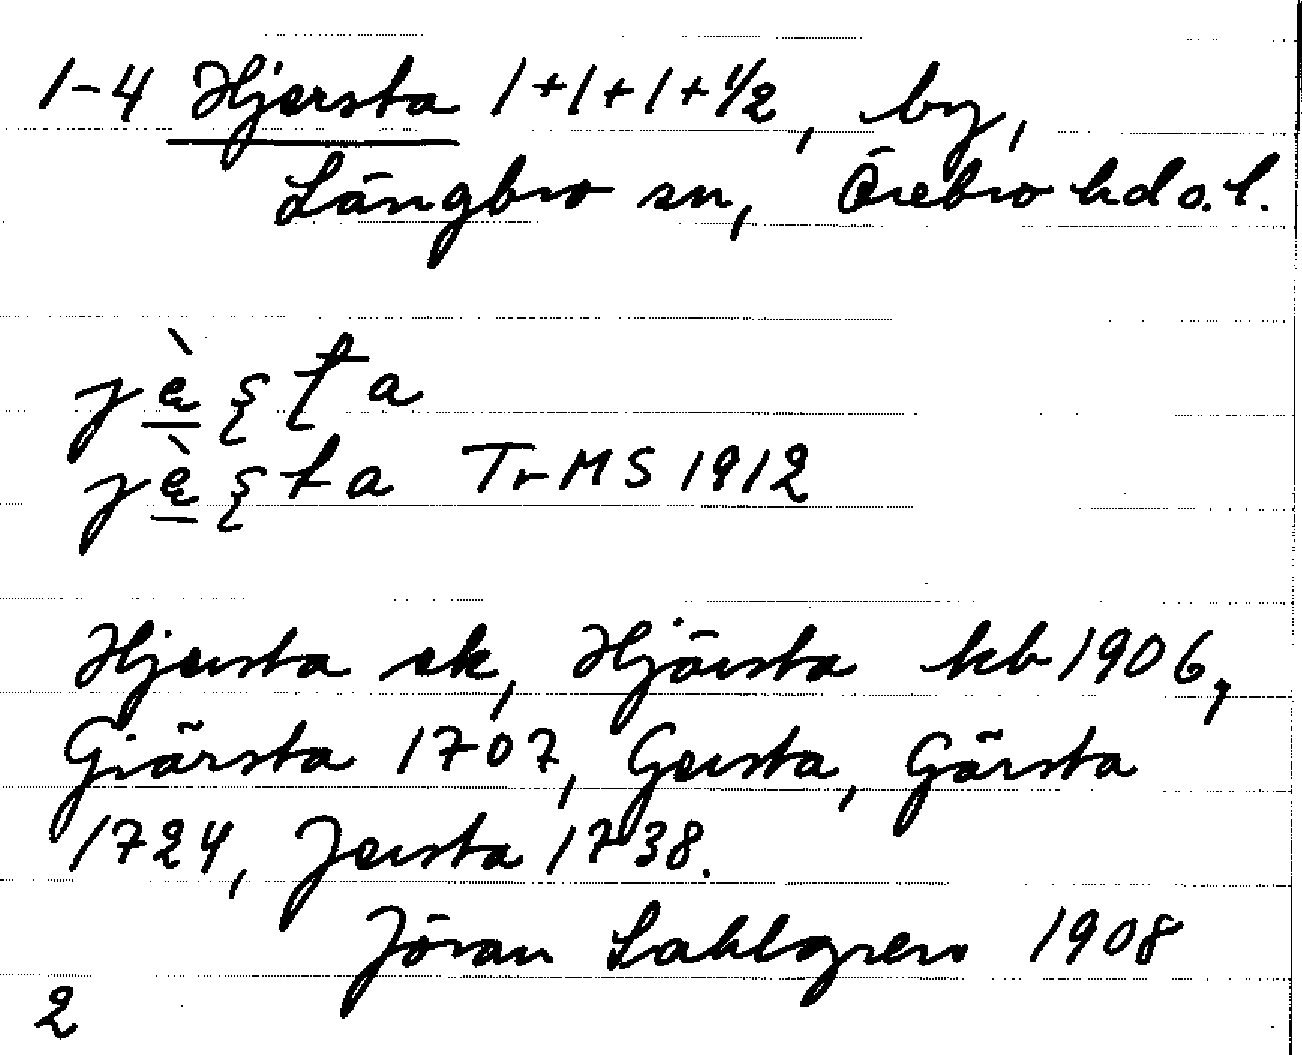 1-4 Hjersta 1+1+1+1/2, by,
Längbro sn, Örebro hd o. l.
jè̱ʂʈa
jè̱ʂta TrMS 1912
Hjersta ek, Hjärsta kb 1906,
Giärsta 1707, Gersta, Gärsta
1724, Jersta 1738.
Jöran Sahlgren 1908
2